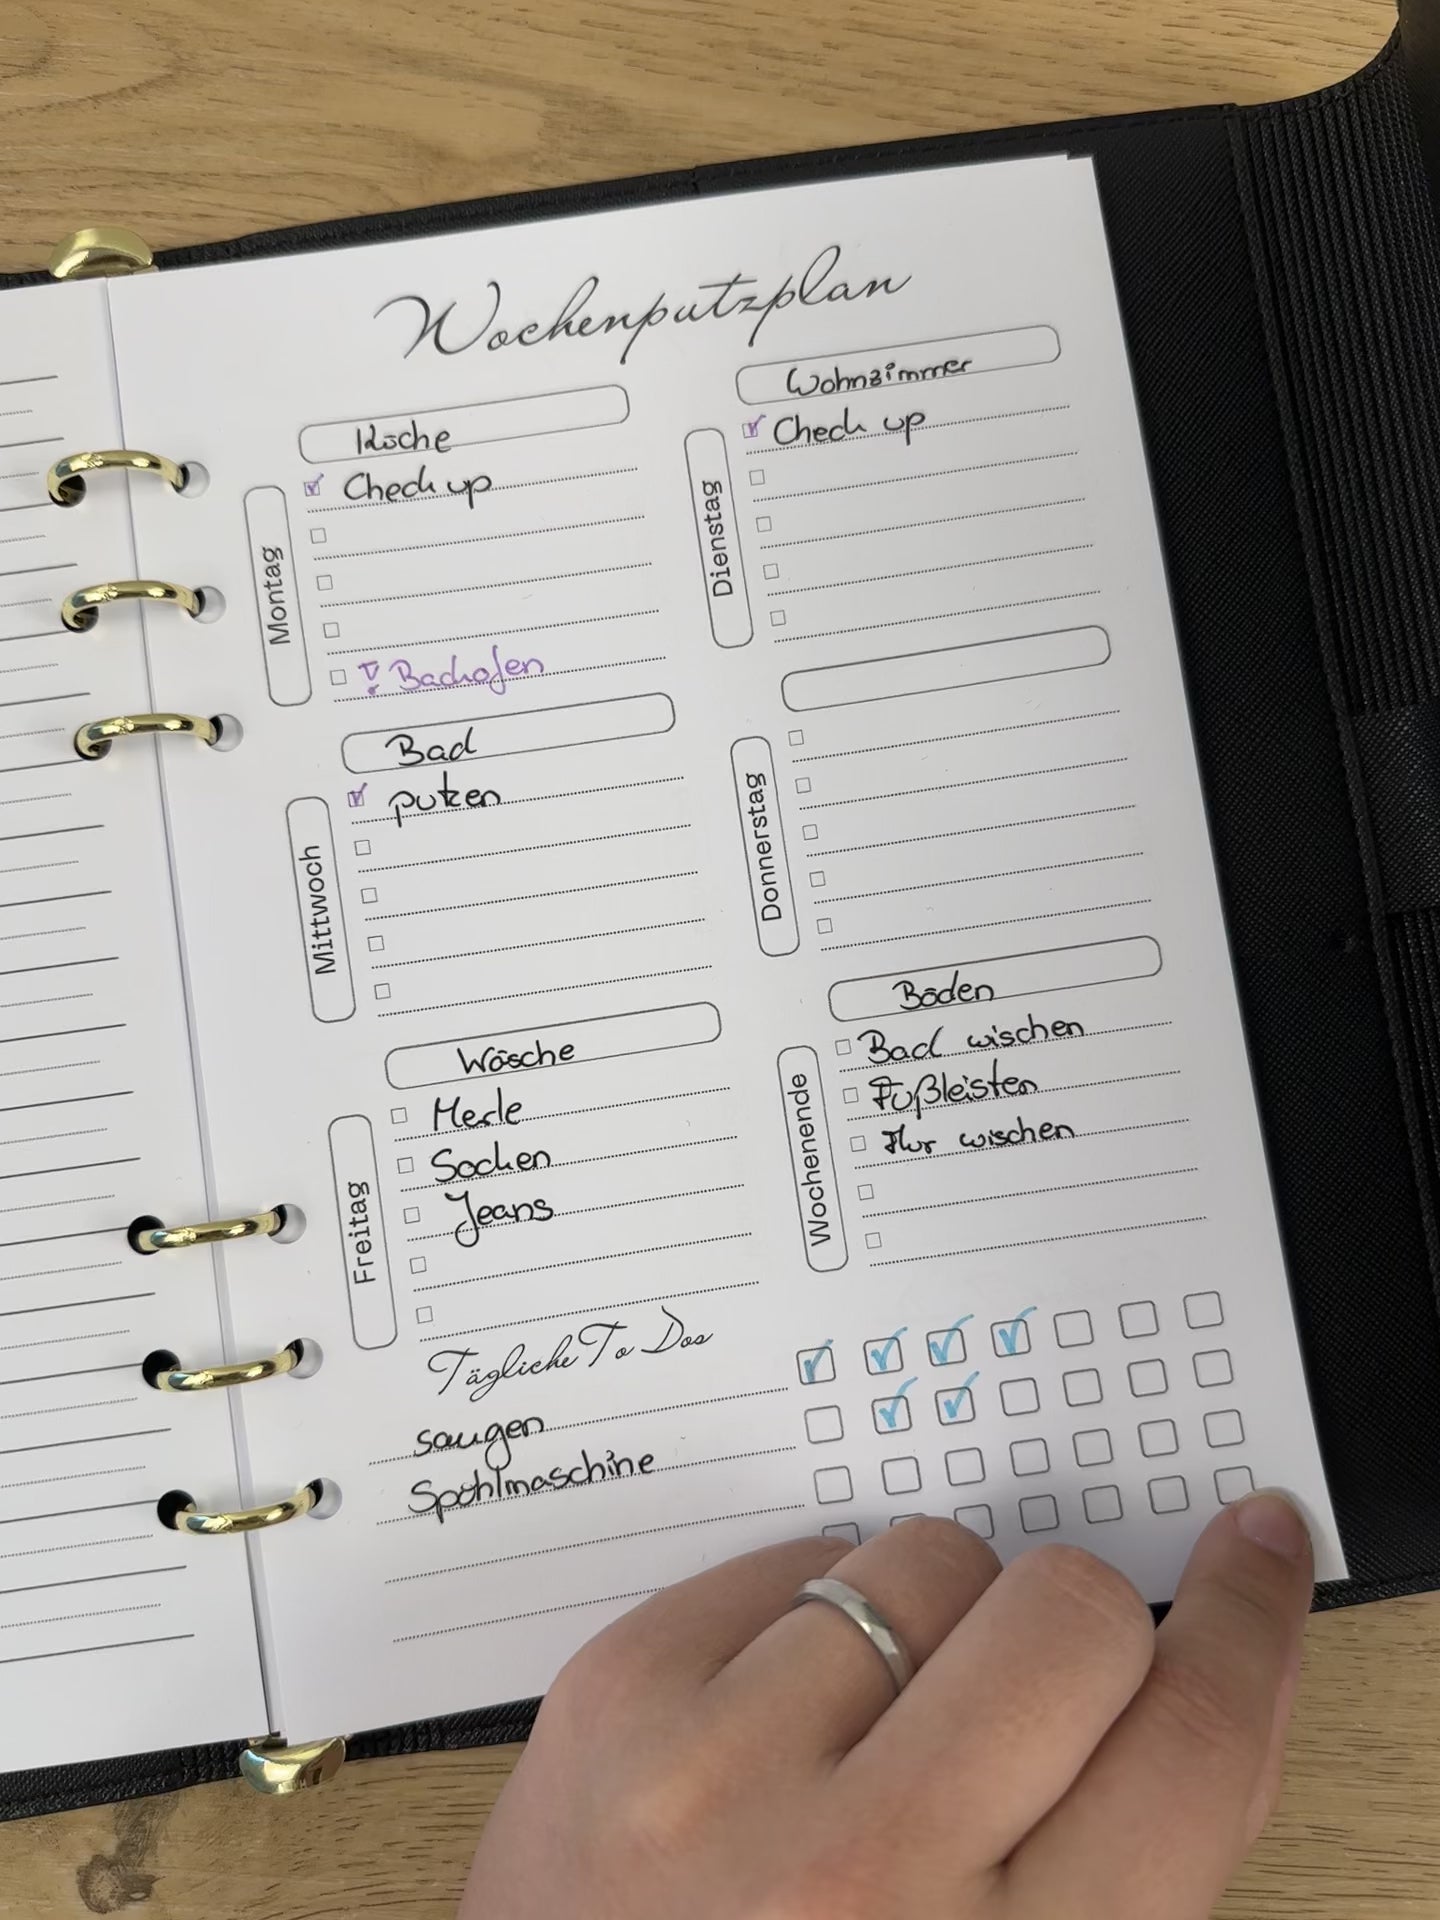 Wochenputzplan
Montag
Küche
Check up
! Backofen
Dienstag
Wohnzimmer
Check up
Mittwoch
Bad
putzen
Donnerstag
Freitag
Wäsche
Merle
Socken
Jeans
Wochenende
Böden
Bad wischen
Fußleisten
Flur wischen
Tägliche To Dos
saugen
Spühlmaschine